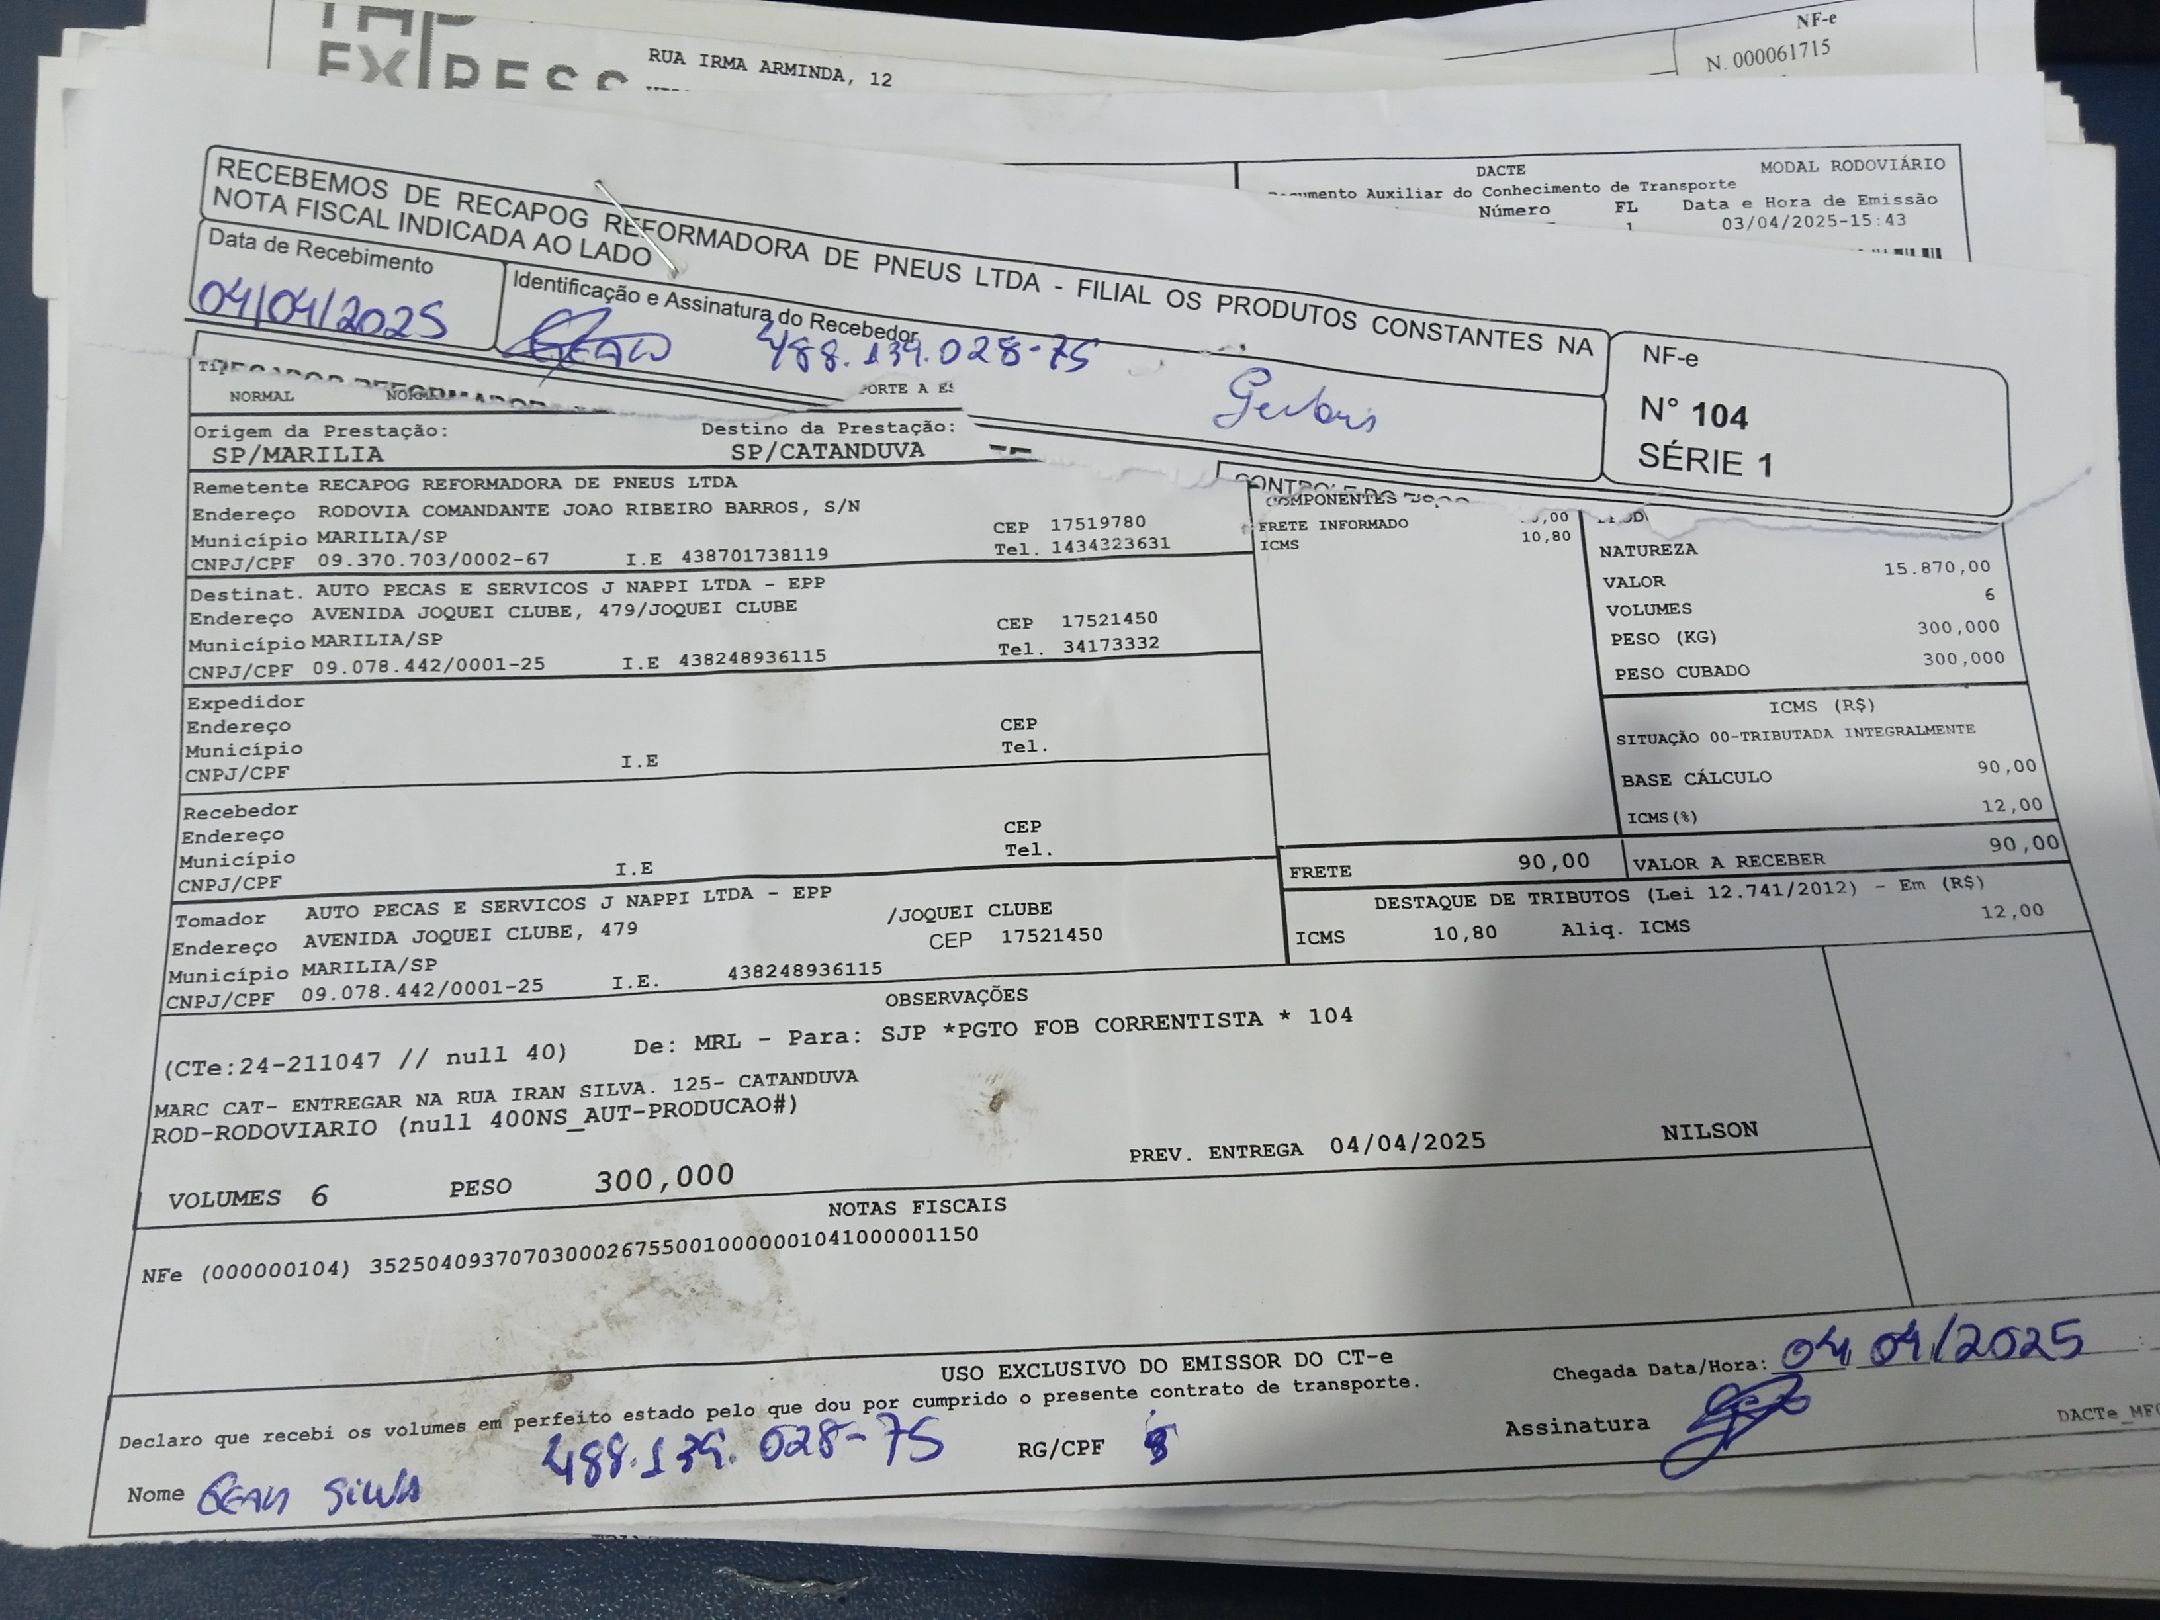 EXPRESS
RUA IRMA ARMINDA, 12
NF-e
N. 000061715
DACTE
MODAL RODOVIÁRIO
Auxiliar do Conhecimento de Transporte
Número FL Data e Hora de Emissão
1 03/04/2025-15:43
RECEBEMOS DE RECAPOG REFORMADORA DE PNEUS LTDA - FILIAL OS PRODUTOS CONSTANTES NA
NOTA FISCAL INDICADA AO LADO
Data de Recebimento
04/04/2025
Identificação e Assinatura do Recebedor
488.139.028-75
NF-e
N° 104
SÉRIE 1
NORMAL
Origem da Prestação:
SP/MARILIA
Destino da Prestação:
SP/CATANDUVA
Remetente RECAPOG REFORMADORA DE PNEUS LTDA
Endereço RODOVIA COMANDANTE JOAO RIBEIRO BARROS, S/N
Município MARILIA/SP CEP 17519780
CNPJ/CPF 09.370.703/0002-67 I.E 438701738119 Tel. 1434323631
Destinat. AUTO PECAS E SERVICOS J NAPPI LTDA - EPP
Endereço AVENIDA JOQUEI CLUBE, 479/JOQUEI CLUBE
Município MARILIA/SP CEP 17521450
CNPJ/CPF 09.078.442/0001-25 I.E 438248936115 Tel. 34173332
Expedidor
Endereço CEP
Município Tel.
CNPJ/CPF I.E
Recebedor
Endereço CEP
Município Tel.
CNPJ/CPF I.E
Tomador AUTO PECAS E SERVICOS J NAPPI LTDA - EPP
Endereço AVENIDA JOQUEI CLUBE, 479 /JOQUEI CLUBE
Município MARILIA/SP CEP 17521450
CNPJ/CPF 09.078.442/0001-25 I.E. 438248936115
COMPONENTES
FRETE INFORMADO
ICMS 10,80
NATUREZA
VALOR 15.870,00
VOLUMES 6
PESO (KG) 300,000
PESO CUBADO 300,000
ICMS (R$)
SITUAÇÃO 00-TRIBUTADA INTEGRALMENTE
BASE CÁLCULO 90,00
ICMS(%) 12,00
FRETE 90,00 VALOR A RECEBER 90,00
DESTAQUE DE TRIBUTOS (Lei 12.741/2012) - Em (R$)
ICMS 10,80 Aliq. ICMS 12,00
OBSERVAÇÕES
(CTe:24-211047 // null 40) De: MRL - Para: SJP *PGTO FOB CORRENTISTA * 104
MARC CAT- ENTREGAR NA RUA IRAN SILVA. 125- CATANDUVA
ROD-RODOVIARIO (null 400NS_AUT-PRODUCAO#)
VOLUMES 6 PESO 300,000 PREV. ENTREGA 04/04/2025 NILSON
NOTAS FISCAIS
NFe (000000104) 35250409370703000267550010000001041000001150
USO EXCLUSIVO DO EMISSOR DO CT-e
Declaro que recebi os volumes em perfeito estado pelo que dou por cumprido o presente contrato de transporte.
Chegada Data/Hora: 04 04/2025
Nome Gean Silva 488.139.028-75 RG/CPF
Assinatura